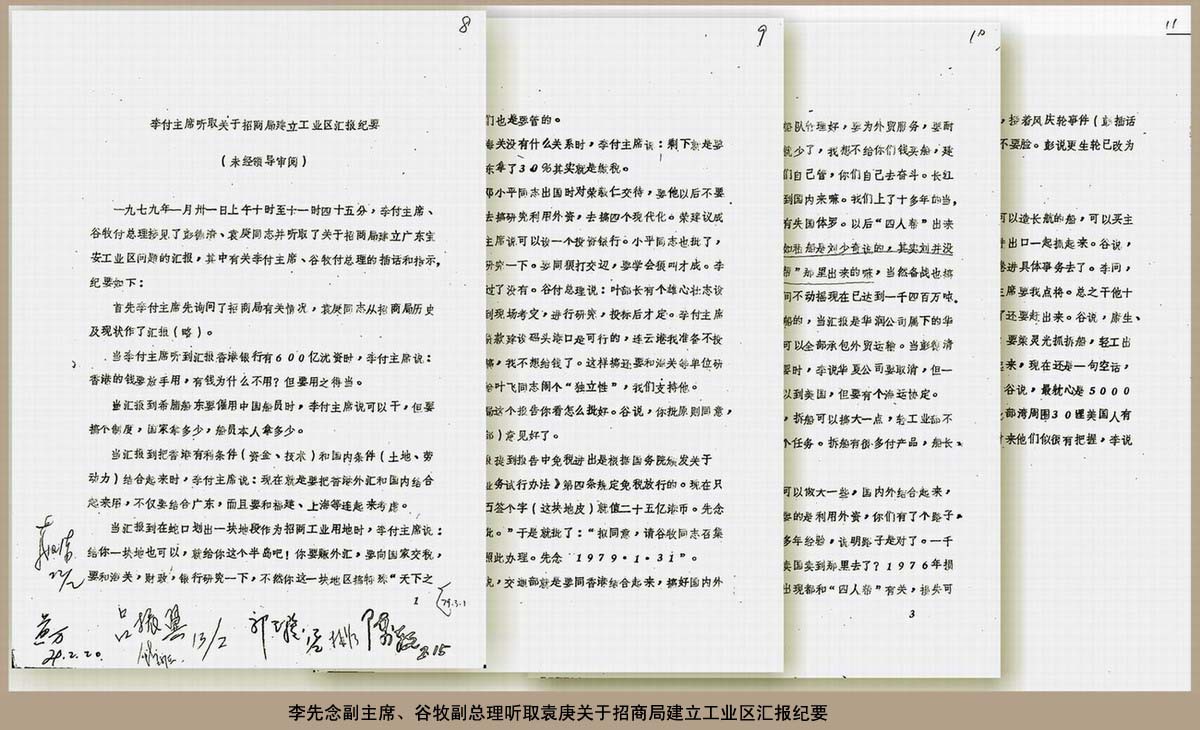 8
李付主席听取关于招商局建立工业区汇报纪要
（未经领导审阅）
一九七九年一月卅一日上午十时至十一时四十五分，李付主席、
谷牧付总理接见了彭德清、袁庚同志并听取了关于招商局建立广东宝
安工业区问题的汇报，其中有关李付主席、谷牧付总理的插话和指示，
纪要如下：
首先李付主席先询问了招商局有关情况，袁庚同志从招商局历史
及现状作了汇报（略）。
当李付主席听到汇报香港银行有600亿沈资时，李付主席说：
香港的钱要放手用，有钱为什么不用？但要用之得当。
当汇报到希腊船东要僱用中国船员时，李付主席说可以干，但要
搞个制度，国家拿多少，船员本人拿多少。
当汇报到把香港有利条件（资金、技术）和国内条件（土地、劳
动力）结合起来时，李付主席说：现在就是要把香港外汇和国内结合
起来用，不仅要结合广东，而且要和福建、上海等连起来考虑。
当汇报到在蛇口划出一块地段作为招商工业用地时，李付主席说：
给你一块地也可以，就给你这个半岛吧！你要赚外汇，要向国家交税，
要和海关，财政，银行研究一下，不然你这一块地区搞特殊“天下之
1
79.3.1
吕振翼
13/2
79.2.20.
9
们也是要管的。
海关没有什么关系时，李付主席说：剩下就是要
东拿了30%其实就是缴税。
邓小平同志出国时对荣毅仁交待，要他以后不要
去搞研究利用外资，去搞四个现代化。荣建议成
主席说可以设一个投资银行。小平同志也批了，
研究一下。要同狼打交道，要学会狼叫才成。李
过了没有。谷付总理说：叶部长有个雄心壮志设
到现场考察，进行研究，投标后才定。李付主席
贷款建设码头港口是可行的，连云港我准备不投
搞，我不想给钱了。这样搞还要和海关等单位研
给叶飞同志闹个“独立性”，我们支持他。
局这个报告你看怎么批好。谷说，你批原则同意，
部）意见好了。
报提到报告中免税进出是根据国务院颁发关于
业务试行办法》第四条规定免税放行的。现在只
百签个字（这块地皮）就值二十五亿港币。先念
批。”于是就批了：“拟同意，请谷牧同志召集
照此办理。先念 1979·1·31”。
说，交通部就是要同香港结合起来，搞好国内外
10
船队管理好，要为外贸服务，要耐
就少了，我想不给你们钱买船，建
们自己管，你们自己去奋斗。长红
到国内来嘛。我们上了十多年的当，
有失国体罗。以后“四人帮”出来
如租船是刘少奇说的，其实刘并没
帮”那里出来的嘛，当然备战也搞
间不动摇现在已达到一千四百万吨。
船的，当汇报是华润公司属下的华
可以全部承包外贸运粮。当彭德清
要时，李说华夏公司要取消，但一
以到美国，但要有个海运协定。
，拆船可以搞大一点，轻工业部不
个任务。拆船有很多付产品，船长
可以做大一些，国内外结合起来，
要的是利用外资，你们有了个路子。
多年经验，说明路子是对了。一千
卖国卖到那里去了？1976年损
出现都和“四人帮”有关，损失可
3
11
，接着风庆轮事件（彭插话
不要脸。彭说更生轮已改为
可以造长航的船，可以买主
进出口一起抓起来。谷说，
卷进具体事务去了。李问，
主席要我点将。总之干他十
了还要赶出来。谷说，康生、
要陈灵光抓拆船，轻工出
起来，现在还是一句空话，
谷说，最忧心是5000
部湾周围30哩美国人有
看来他们似很有把握，李说
李先念副主席、谷牧副总理听取袁庚关于招商局建立工业区汇报纪要